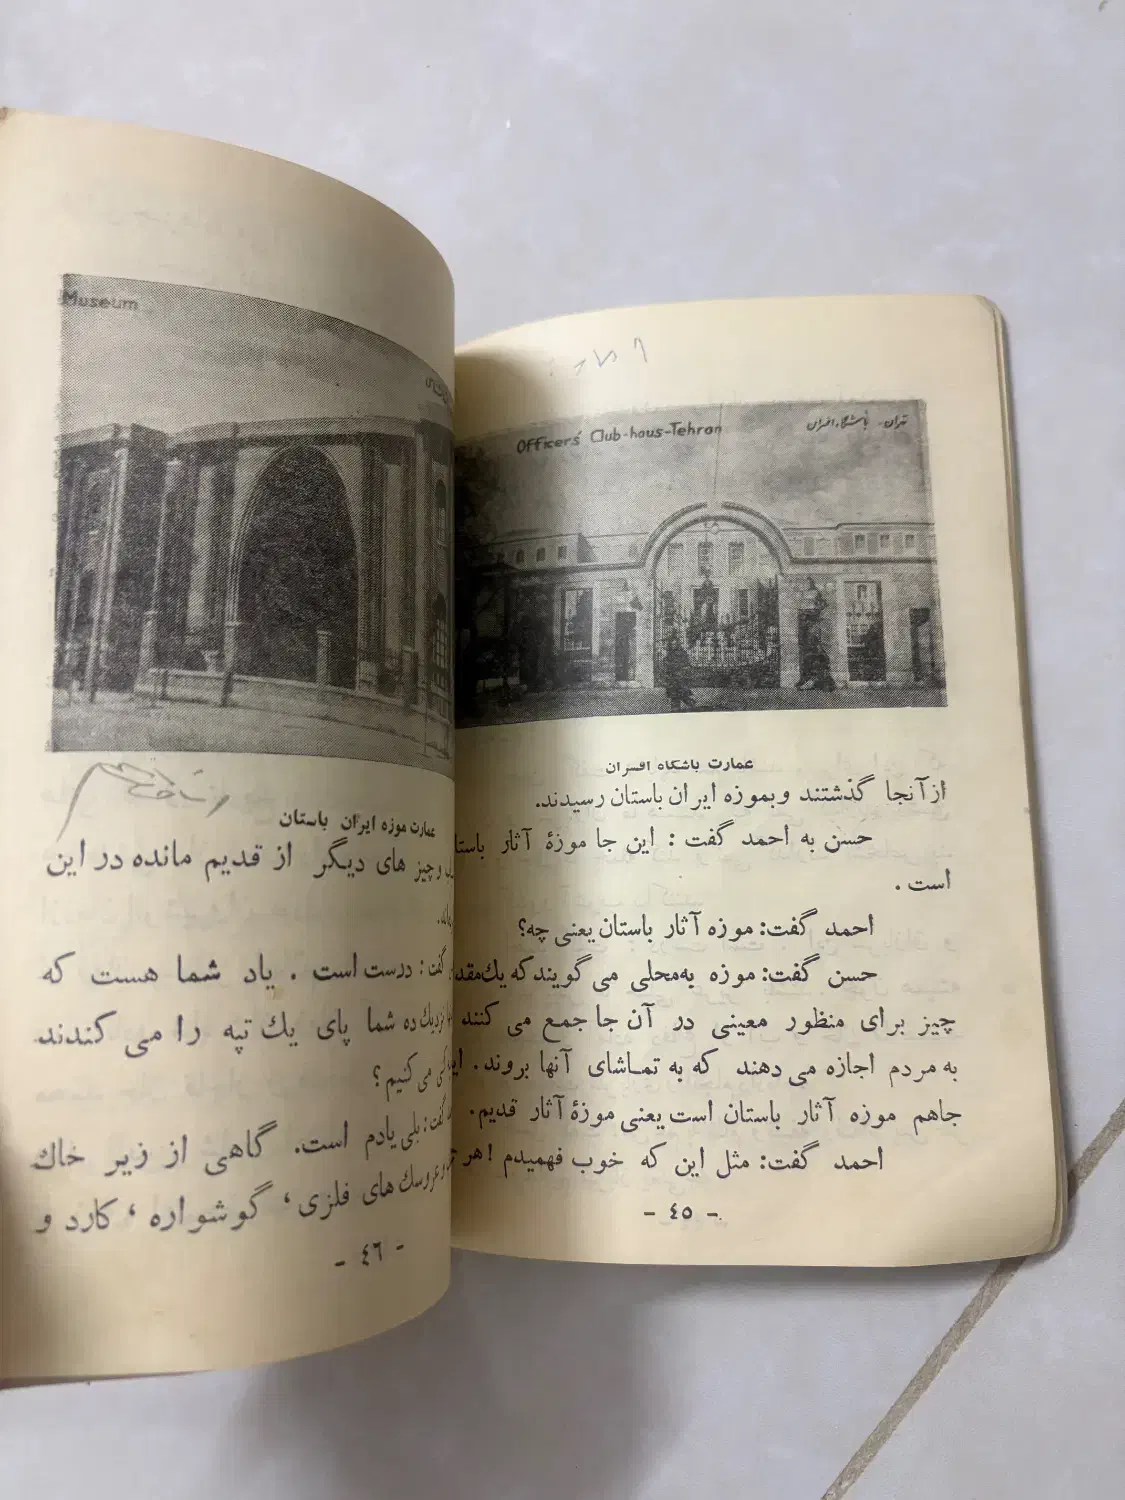 Officers' Club-haus-Tehran
تهران - باشگاه افسران
عمارت باشگاه افسران
از آنجا گذشتند و بموزه ایران باستان رسیدند.
حسن به احمد گفت : این جا موزهٔ آثار باستا
است .
احمد گفت: موزه آثار باستان یعنی چه؟
حسن گفت: موزه به‌محلی می گویند که یك‌مقد
چیز برای منظور معینی در آن جا جمع می کنند
به مردم اجازه می دهند که به تماشای آنها بروند . این
جاهم موزه آثار باستان است یعنی موزهٔ آثار قدیم.
احمد گفت: مثل این که خوب فهمیدم ! هر
- ٤٥ -
Museum
عمارت موزه ایران باستان
و چیز های دیگر از قدیم مانده در این
گفت : درست است . یاد شما هست که
نزدیك ده شما پای یك تپه را می کندند
می کنیم ؟
گفت: بلی یادم است. گاهی از زیر خاك
و عروسك های فلزی ، گوشواره ، کارد و
- ٤٦ -